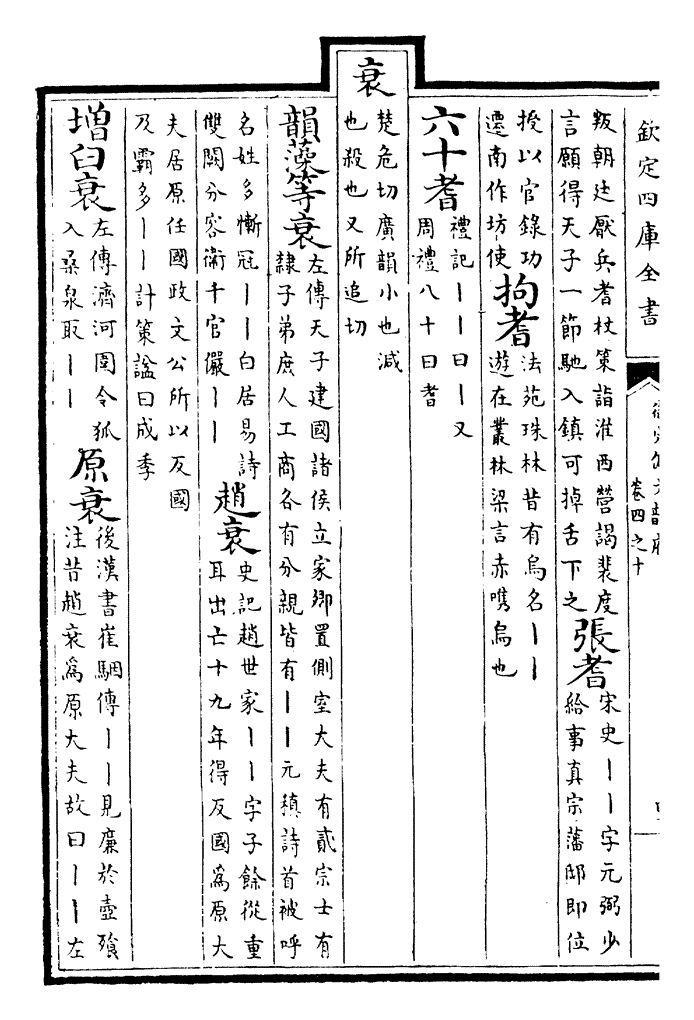 欽定四庫全書
御定佩文韻府
卷四之十
叛朝廷厭兵耆杖策詣淮西營謁裴度
言願得天子一節馳入鎮可掉舌下之
張耆
宋史丨丨字元弼少
給事真宗藩邸即位
授以官錄功
遷南作坊使
拘耆
法苑珠林昔有烏名丨丨
遊在叢林梁言赤嘴烏也
六十耆
禮記丨丨曰丨又
周禮八十曰耆
衰
楚危切廣韻小也減
也殺也又所追切
韻藻等衰
左傳天子建國諸侯立家卿置側室大夫有貳宗士有
隸子弟庶人工商各有分親皆有丨丨元稹詩首被呼
名姓多慚冠丨丨白居易詩
雙闕分容衛千官儼丨丨
趙衰
史記趙世家丨丨字子餘從重
耳出亡十九年得反國為原大
夫居原任國政文公所以反國
及霸多丨丨計策諡曰成季
增臼衰
左傳濟河圍令狐
入桑泉取丨丨
原衰
後漢書崔駰傳丨丨見廉於壺飱
注昔趙衰為原大夫故曰丨丨左